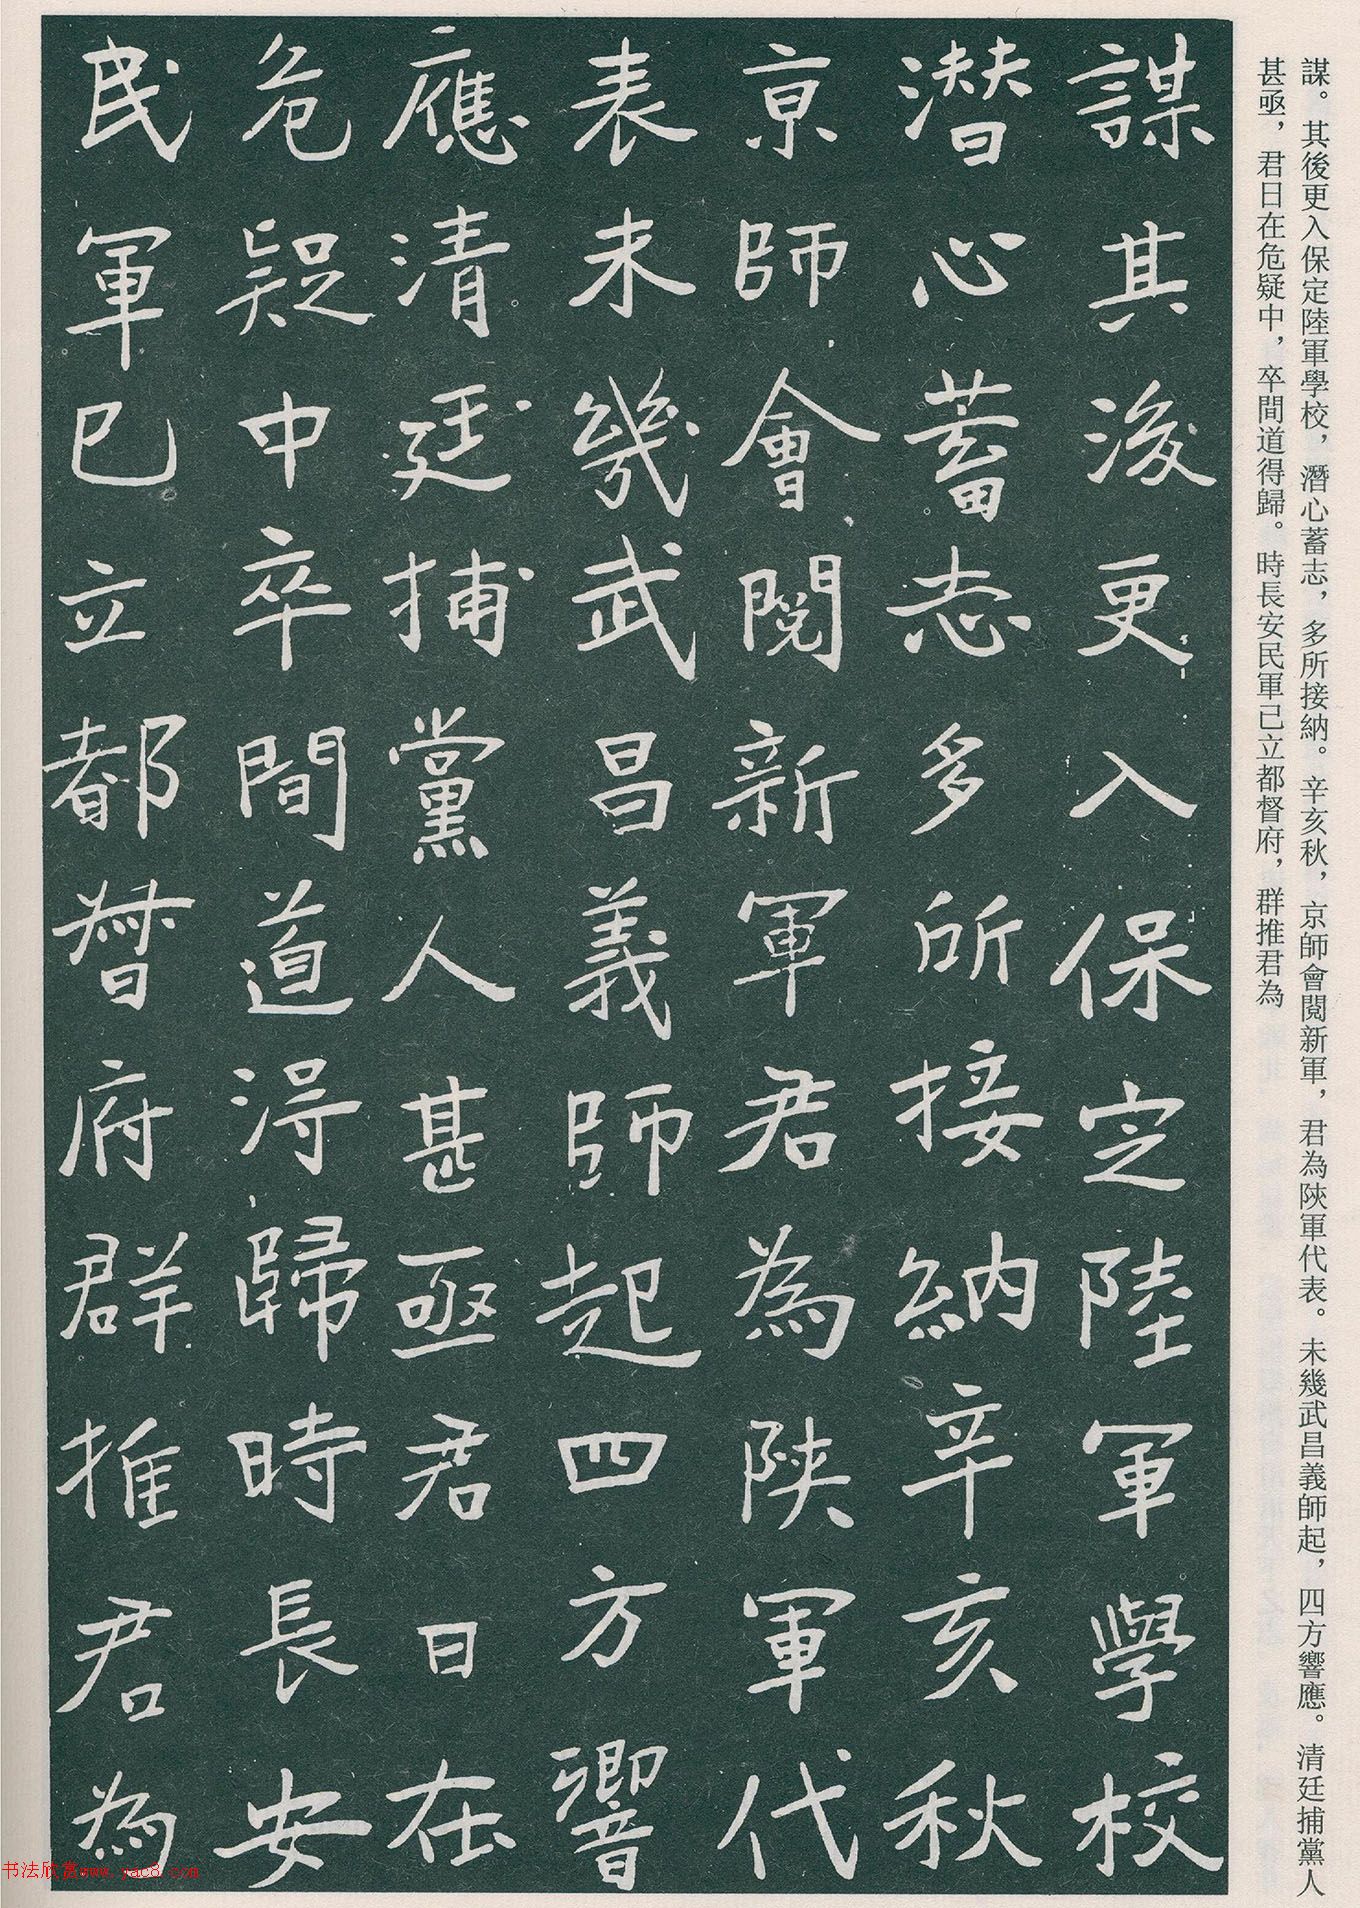 謀。其後更入保定陸軍學校，潛心蓄志，多所接納。辛亥秋，京師會閱新軍，君為陝軍代表。未幾武昌義師起，四方響應。清廷捕黨人
甚亟，君日在危疑中，卒間道得歸。時長安民軍已立都督府，群推君為
謀其後更入保定陸軍學校
潛心蓄志多所接納辛亥秋
京師會閱新軍君為陝軍代
表未幾武昌義師起四方響
應清廷捕黨人甚亟君日在
危疑中卒間道得歸時長安
民軍已立都督府群推君為
书法欣赏www.yac8.com